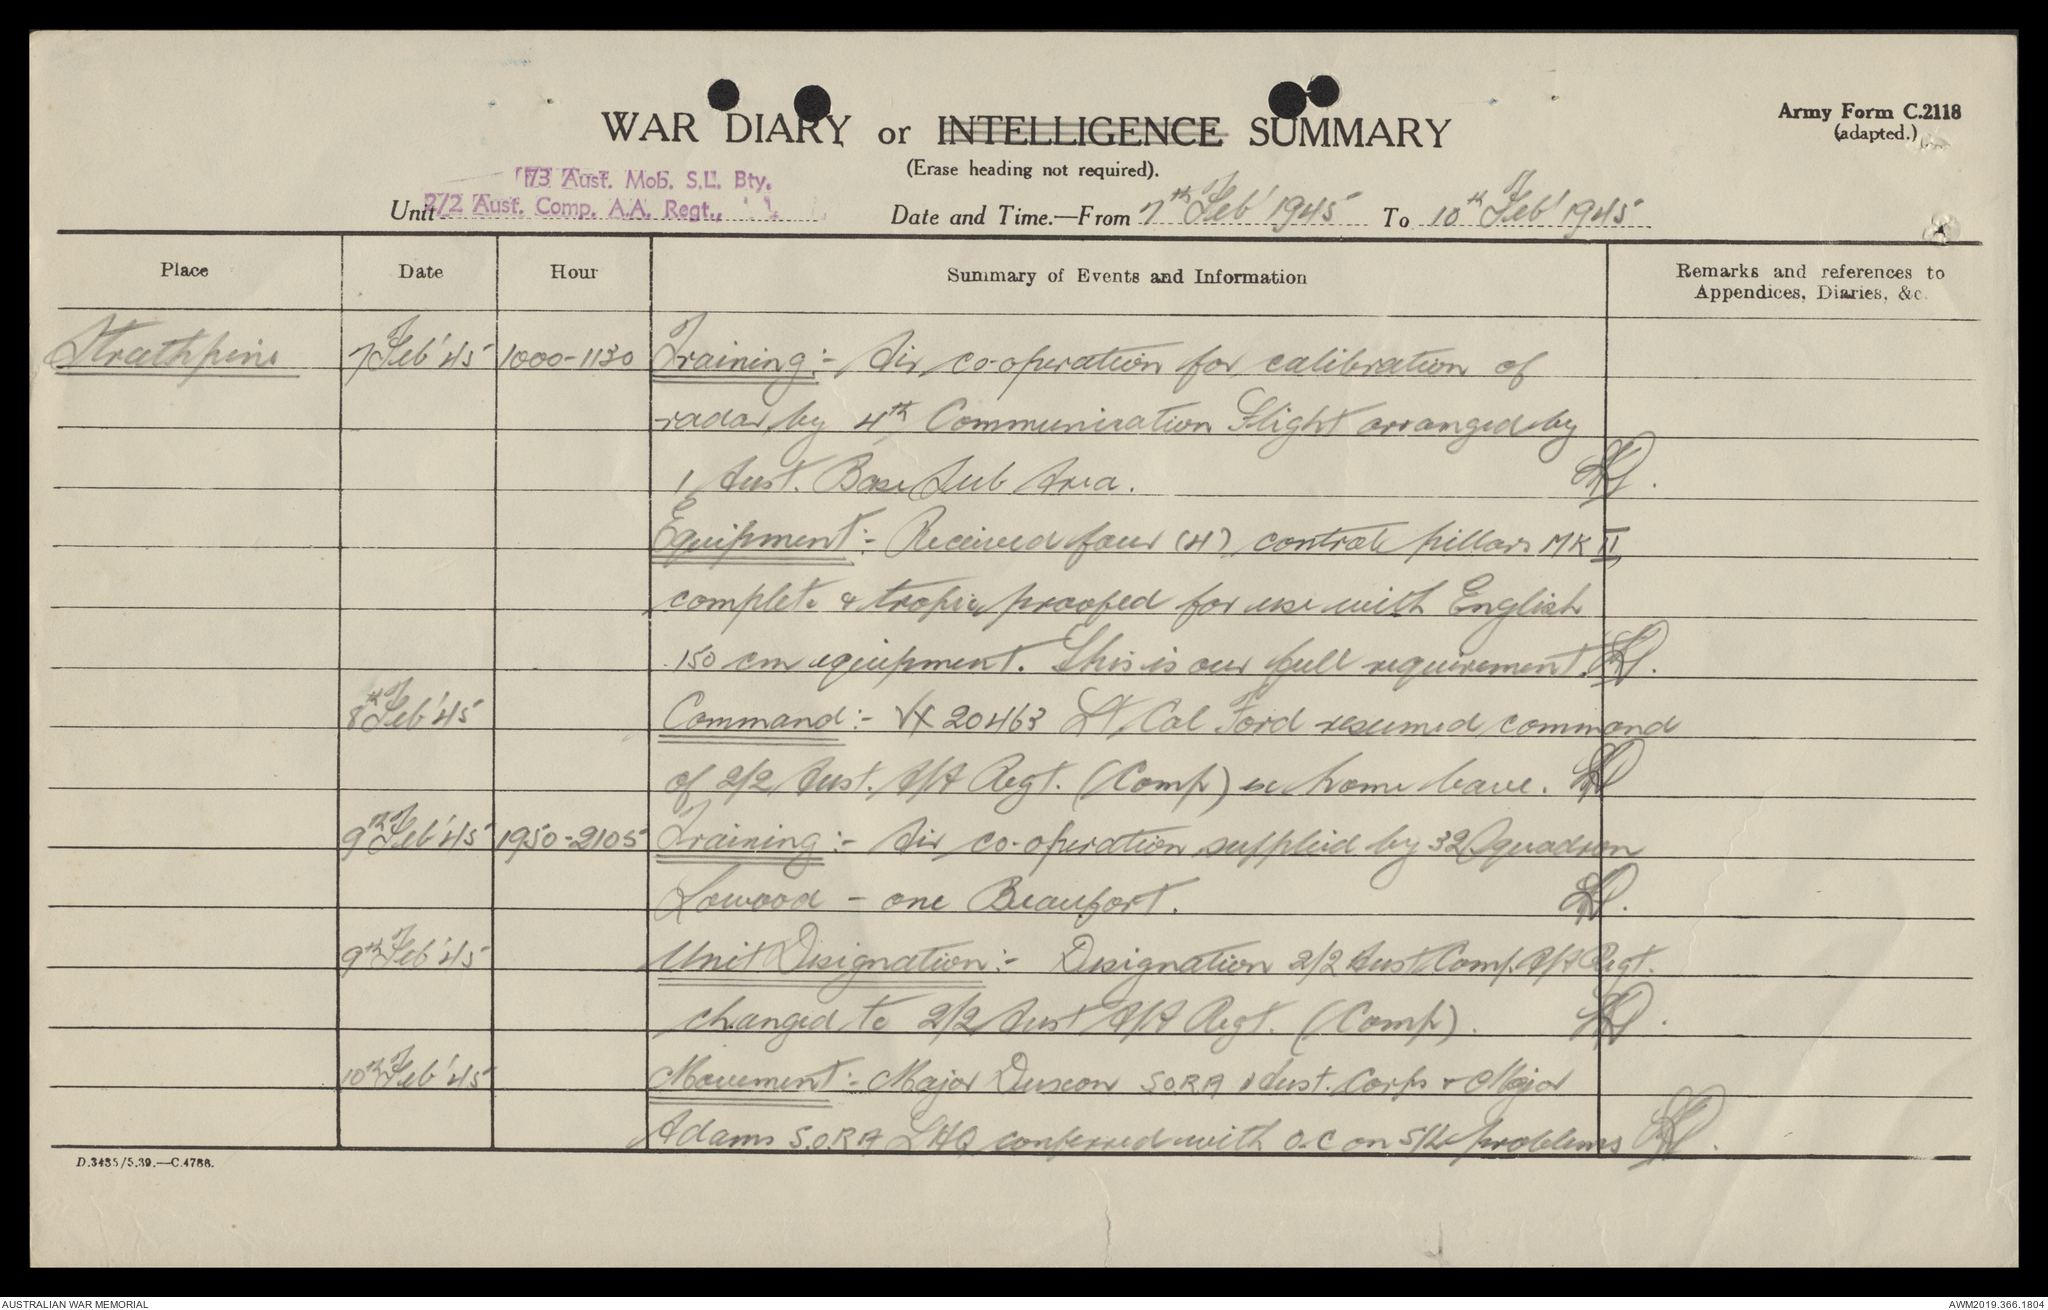 Army Form C.2118
(adapted.)
WAR DIARY or INTELLIGENCE SUMMARY
(Erase heading not required).
73 Aust. Mob. S.L. Bty.
Unit 2/2 Aust. Comp. A.A. Regt.,
Date and Time.—From 7th Feb' 1945 To 10th Feb' 1945
Place Date Hour Summary of Events and Information Remarks and references to
Appendices, Diaries, &c.
Strathpine 7 Feb' 45 1000-1130 Training:- Air co-operation for calibration of
radar by 4th Communication Flight arranged by
1 Aust. Base Sub Area.
Equipment:- Received four (4) control pillars MK II
complete & tropic proofed for use with English
150 cm equipment. This is our full requirement.
8th Feb' 45 Command:- VX 20463 Lt Col Ford resumed command
of 2/2 Aust. A/A Regt. (Comp) ex home leave.
9th Feb' 45 1950-2105 Training:- Air co-operation supplied by 32 Squadron
Lowood - one Beaufort.
9th Feb' 45 Unit Designation:- Designation 2/2 Aust Comp. A/A Regt.
changed to 2/2 Aust A/A Regt. (Comp).
10th Feb' 45 Movement:- Major SORA 1 Aust. Corps & Major
Adams S.O.R.A LHQ conferred with O.C on S/L problems
D.3435/5.39.—C.4788.
AUSTRALIAN WAR MEMORIAL
AWM2019.366.1804